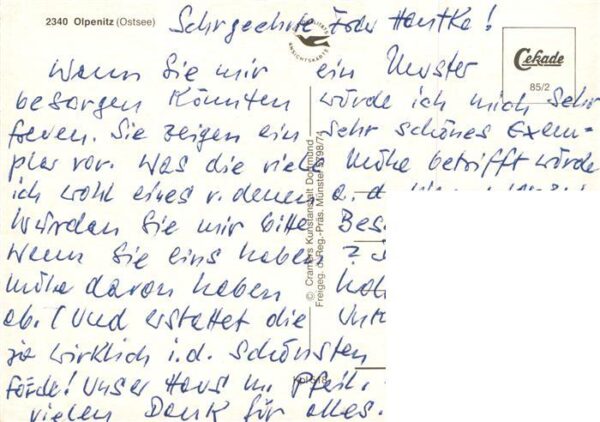 2340 Olpenitz (Ostsee)
Sehr geehrte Frau Hantke!
Wenn Sie mir ein Muster
besorgen könnten würde ich mich sehr
freuen. Sie zeigen ein sehr schönes Exem-
plar vor. Was die viele Mühe betrifft würde
ich wohl eines v. denen a. d.
würden Sie mir bitte Bes
Wenn Sie eins haben ?
Mühe davon haben
ab. (Und erstattet die Unk
ja wirklich i. d. schönsten
Förde! Unser Haus m. Pfeil.
vielen Dank für alles.
ANSICHTSKARTE
Cekade
85/2
© Cramers Kunstanstalt Dortmund
Freigeg. d. Reg.-Präs. Münster 5298/74